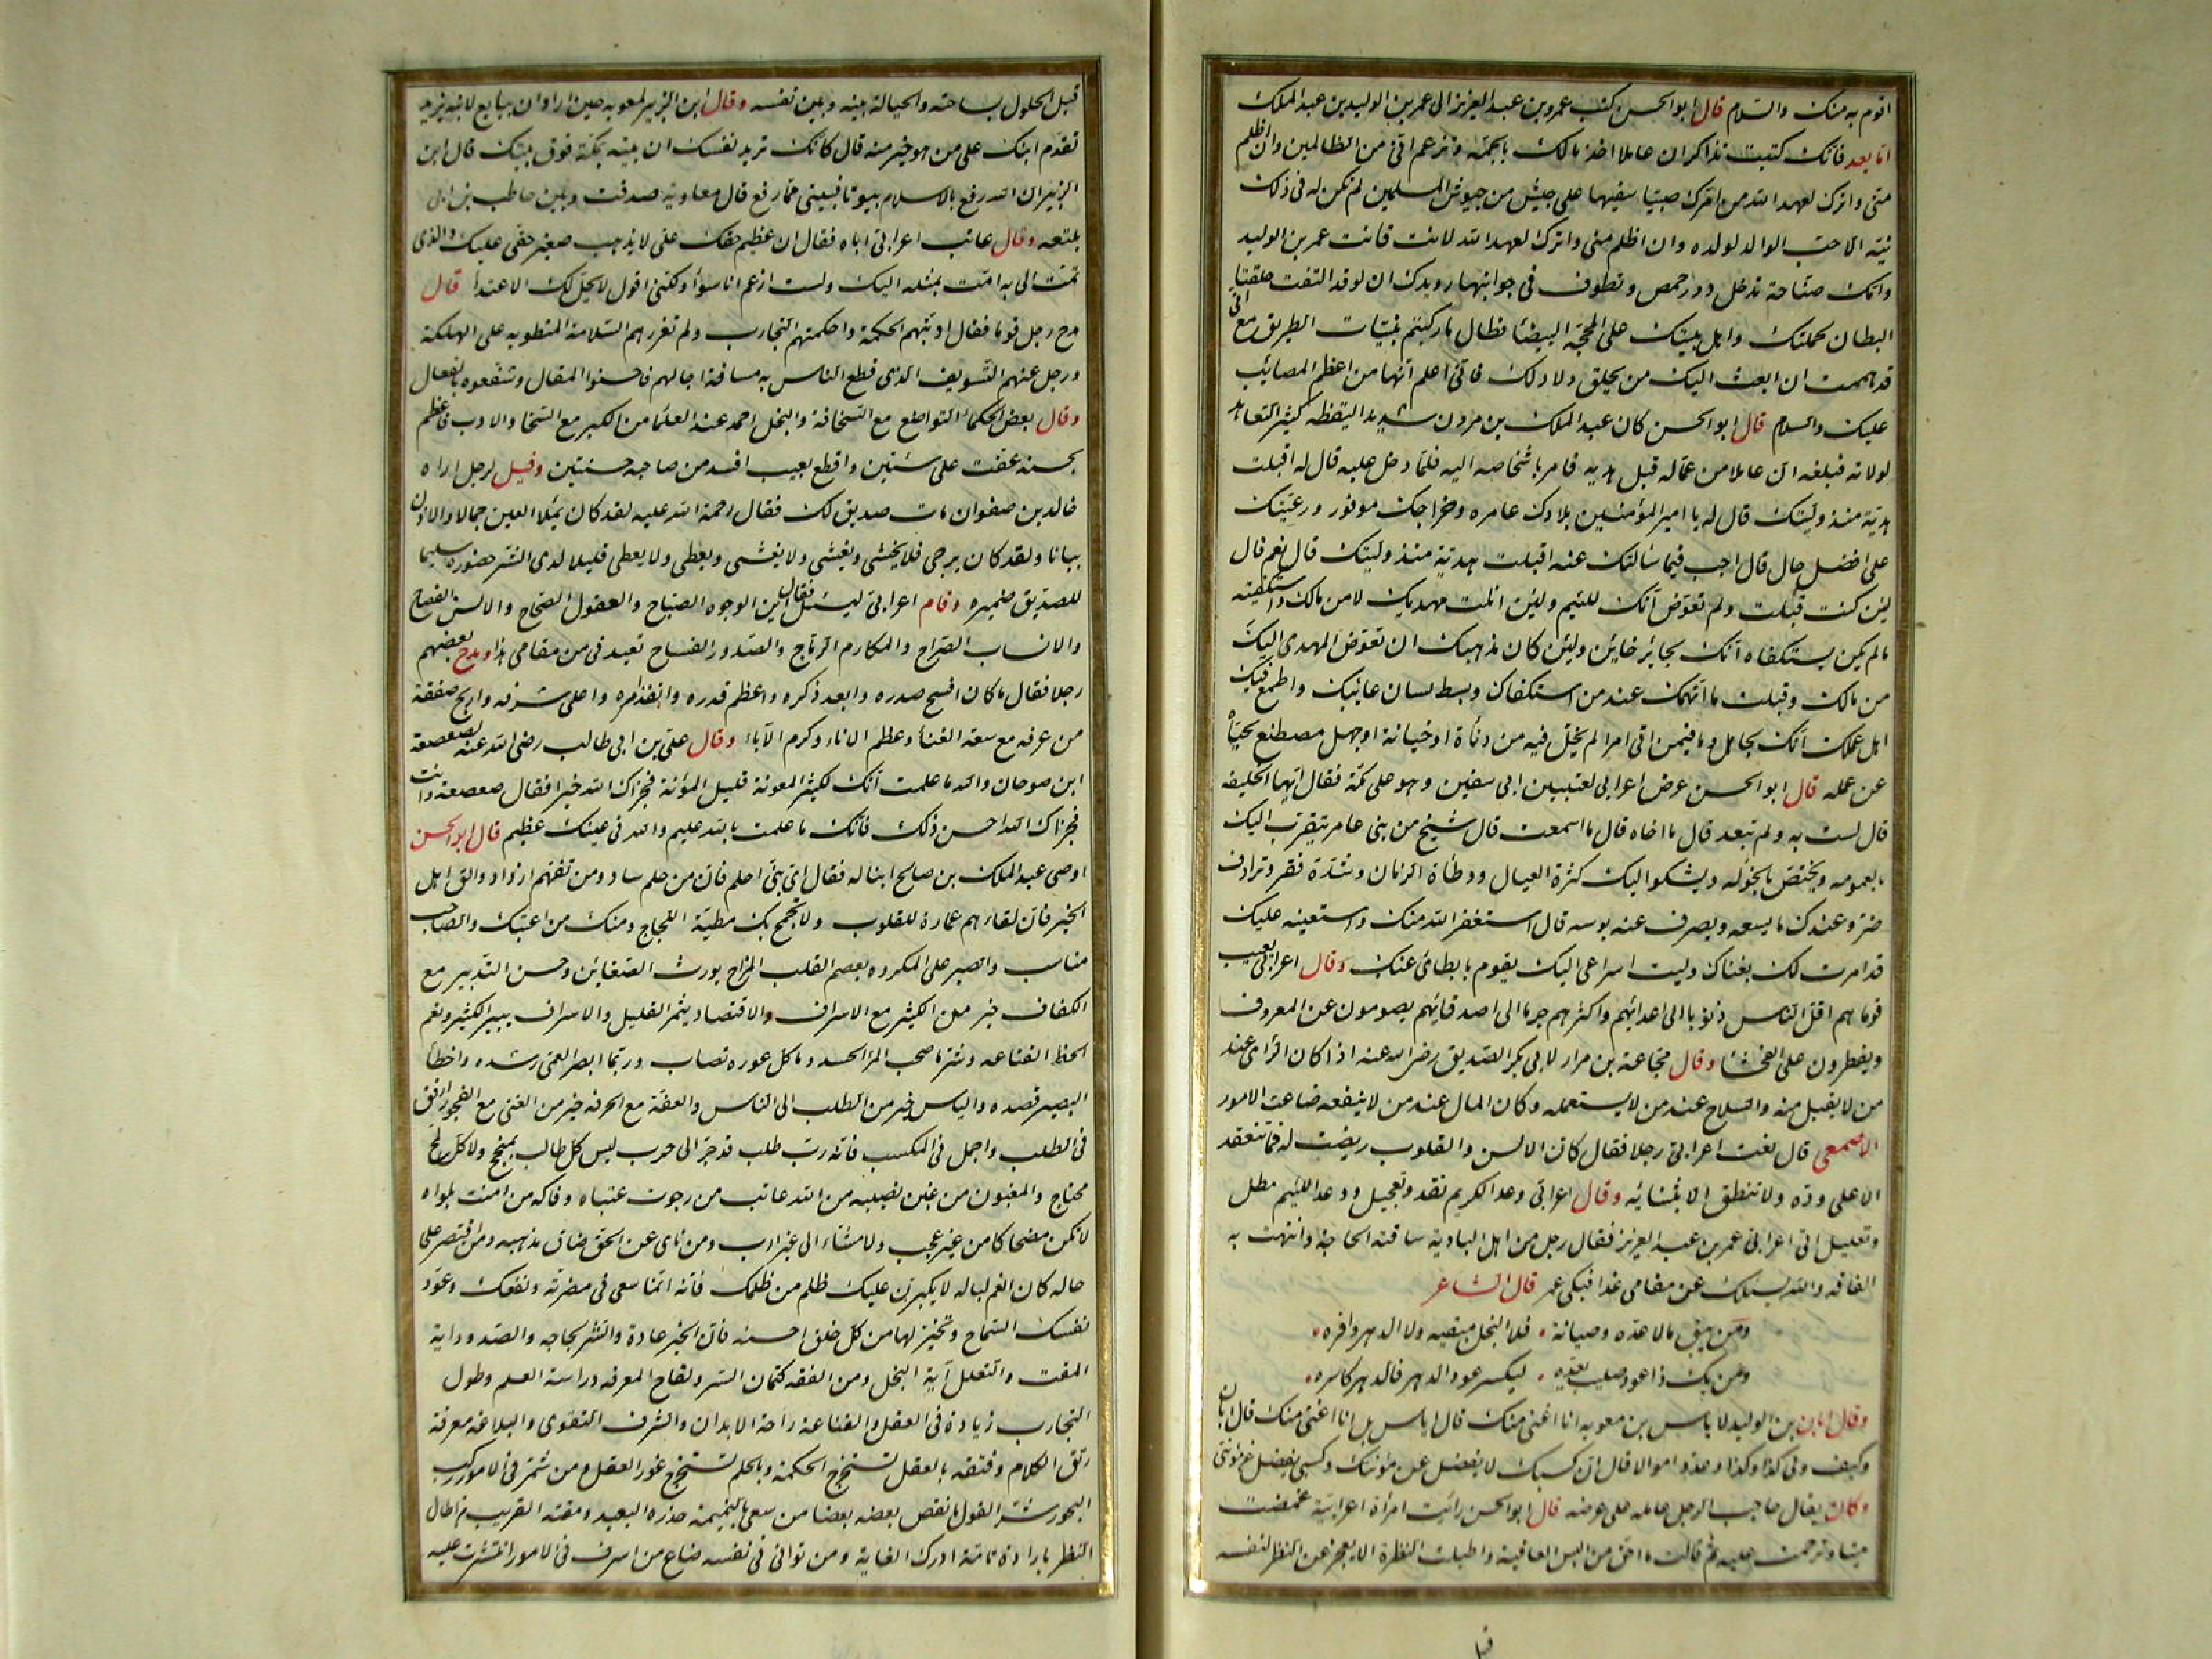 اقوم به منك والسلام قال ابو الحسن كتب عمرو بن عبد العزيز الى عمر بن الوليد بن عبد الملك
اما بعد فانك كتبت تذاكر ان عاملا اخذ مالك بالحمة وتزعم اني من الظالمين وان اظلم
مني واترك لعهد الله من امرك صبيا سفيها على جيش من جيوش المسلمين لم تكن له في ذلك
نية الا حب الوالد لولده وان اظلم مني واترك لعهد الله لانت فانت عمر بن الوليد
وامك صناجة تدخل دور حمص وتطوف في حوانيتها رويدك ان لو قد التقت حلقتا
البطان لحملتك واهل بيتك على المحجة البيضا فطال ما ركبتم بنيات الطريق مع اني
قد هممت ان ابعث اليك من يحلق دلادلك فاني اعلم انها من اعظم المصائب
عليك والسلام قال ابو الحسن كان عبد الملك بن مردن شديد اليقظه كثير التعاهد
لولاته فبلغه ان عاملا من عماله قبل هديه فامر باشخاصه اليه فلما دخل عليه قال له اقبلت
هدية منذ وليتك قال له يا امير المؤمنين بلادك عامره وخراجك موفور ورعيتك
على افضل حال قال اجب فيما سالتك عنه اقبلت هدية منذ وليتك قال نعم قال
لئن كنت قبلت ولم تعوض انك للئيم ولئن انلت مهديك لا من مالك واستكفيته
مالم يكن يستكفاه انك لجائر خائن ولئن كان مذهبك ان تعوض المهدي اليك
من مالك وقبلت ما اتهمك عند من استكفاك وبسط لسان عائبك واطمع فيك
اهل عملك انك لجاهل وما فيمن اتى امرا لم يخل فيه من دناة او خيانة او جهل مصطنع نحياه
عن عمله قال ابو الحسن عرض اعرابي لعتبة بن ابي سفين وهو على مكة فقال ايها الخليفه
قال لست به ولم تبعد قال يا اخاه قال ما اسمعت قال شيخ من بني عامر يتقرب اليك
بالعمومه ويختص بالخؤله ويشكوا اليك كثرة العيال ووطأة الزمان وشدة فقر وترادف
ضر وعندك ما يسعه ويصرف عنه بوسه قال استغفر الله منك واستعينه عليك
قد امرت لك بغناك وليت اسراعي اليك يقوم بابطائ عنك وقال اعرابي يعيب
قوما هم اقل الناس ذنوبا الى اعدائهم واكثرهم جرما الى اصدقائهم يصومون عن المعروف
ويفطرون على الفحشا وقال مجاعة بن مرار لابي بكر الصديق رضي الله عنه اذا كان الراي عند
من لا يقبل منه والسلاح عند من لا يستعمله وكان المال عند من لا ينفعه ضاعت الامور
الاصمعي قال نعت اعرابي رجلا فقال كان الالسن والقلوب ريضت له فما تنعقد
الا على وده ولا تنطق الا بثنائه وقال اعرابي وعد الكريم نقد وتعجيل ووعد اللئيم مطل
وتعليل اتى اعرابي عمر بن عبد العزيز فقال رجل من اهل البادية ساقته الحاجة وانتهت به
الفاقه والله يسئلك عن مقامي غدا فبكى عمر قال الشاعر
ومن يبق مالا عده وصيانة فلا البخل مبقيه ولا الدهر وافره
ومن يك ذا عود صليب يعده ليكسر عود الدهر فالدهر كاسره
وقال ابان بن الوليد لاياس بن معويه انا اغنى منك قال اياس بل انا اغنى منك قال ابان
وكيف ولي كذا وكذا وعدد اموالا قال ان كسبك لا يفضل عن مؤنتك وكسبي يفضل عن مؤنتي
وكان يقال حاجب الرجل عامله على عرضه قال ابو الحسن رايت امراة اعرابية غمضت
ميتا وترحمت عليه ثم قالت ما احق من البس العافية واطيلت النظرة الا يعجز عن النظر لنفسه
قبل الحلول بساحته والحيالة بينه وبين نفسه وقال ابن الزبير لمعويه حين اراد ان يبايع لابنه يزيد
تقدم ابنك على من هو خير منه قال كانك تريد نفسك ان بيته بمكة فوق بيتك قال ابن
الزبير ان الله رفع بالاسلام بيوتا فبيتي مما رفع قال معاوية صدقت وبين حاطب بن ابي
بلتعه وقال عاتب اعرابي اباه فقال ان عظيم حقك على لا يذهب صغير حقي عليك والذي
تمت الي به امت بمثله اليك ولست ازعم انا سوأ ولكني اقول لا يحل لك الاعتدأ قال
مدح رجل قوما فقال ادبتهم الحكمة واحكمتهم التجارب ولم تغررهم السلامة المنطويه على الهلكة
ورحل عنهم التسويف الذي قطع الناس به مسافة اجالهم فاحسنوا المقال وشفعوه بالفعال
وقال بعض الحكما التواضع مع السخافة والبخل احمد عند العلما من الكبر مع السخا والادب فاعظم
بحسنه عفت على سئتين واقطع بعيب افسد من صاحبه حسنتين وقيل لرجل اراه
خالد بن صفوان مات صديق لك فقال رحمة الله عليه لقد كان يملا العين جمالا والاذن
بيانا ولقد كان يرجى فلا يخشى ويغشى ولا يغشى ويعطى ولا يعطى قليلا لدى الشر حضوره سليما
للصديق ضميره وقام اعرابي ليسئل فقال اين الوجوه الصباح والعقول الصحاح والالسن الفصاح
والانساب الصراح والمكارم الرباح والصدور الفساح تعيدني من مقامي هذا ومدح بعضهم
رجلا فقال ما كان افسح صدره وابعد ذكره واعظم قدره وانفذ امره واعلى شرفه واربح صفقة
من عرفه مع سعة الفنأ وعظم الاناء وكرم الآباء وقال علي بن ابي طالب رضي الله عنه لصعصعة
ابن صوحان والله ما علمت انك لكثير المعونة قليل المؤنة فجزاك الله خيرا فقال صعصعة وانت
فجزاك الله احسن ذلك فانك ما علمت بالله عليم والله في عينك عظيم قال ابو الحسن
اوصى عبد الملك بن صالح ابنا له فقال اي بني احلم فان من حلم ساد ومن تفهم ازداد والق اهل
الخير فان لقاءهم عمارة للقلوب ولا تجمح بك مطية اللجاج ومنك من اعتبك والصاحب
مناسب والصبر على المكروه يعصم القلب المزاح يورث الضغائن وحسن التدبير مع
الكفاف خير من الكثير مع الاسراف والاقتصاد يثمر القليل والاسراف يبير الكثير ونعم
الحظ القناعه وشر ما صحب المرا الحسد وما كل عوره تصاب وربما ابصر العمى رشده واخطأ
البصير قصده والياس خير من الطلب الى الناس والعفة مع الحرفه خير من الغنى مع الفجور ارفق
في الطلب واجمل في المكسب فانه رب طلب قد جر الى حرب ليس كل طالب بمنجح ولا كل ملح
محتاج والمغبون من غبن نصيبه من الله عاتب من رجوت عتباه وفاكه من امنت بلواه
لا تكن مضحاكا من غير عجب ولا مشاء الى غير ارب ومن ناى عن الحق ضاق مذهبه ومن اقتصر على
حاله كان انعم لباله لا يكبرن عليك ظلم من ظلمك فانه انما سعى في مضرته ونفعك وعود
نفسك السماح وتخير لها من كل خلق احسنه فان الخير عادة والشر لجاجه والصدود اية
المقت والتعلل آية البخل ومن الفقه كتمان السر ولقاح المعرفه دراسة العلم وطول
التجارب زيادة في العقل والقناعة راحة الابدان والشرف التقوى والبلاغه معرفة
رتق الكلام وفتقه بالعقل تستخرج الحكمة وبالحلم تستخرج غور العقل ومن شمر في الامور ركب
البحور شر القول ما نقض بعضه بعضا من سعى بالنميمة حذره البعيد ومقته القريب من اطال
النظر بارادة تامة ادرك الغاية ومن توانى في نفسه ضاع من اسرف في الامور انتشرت عليه